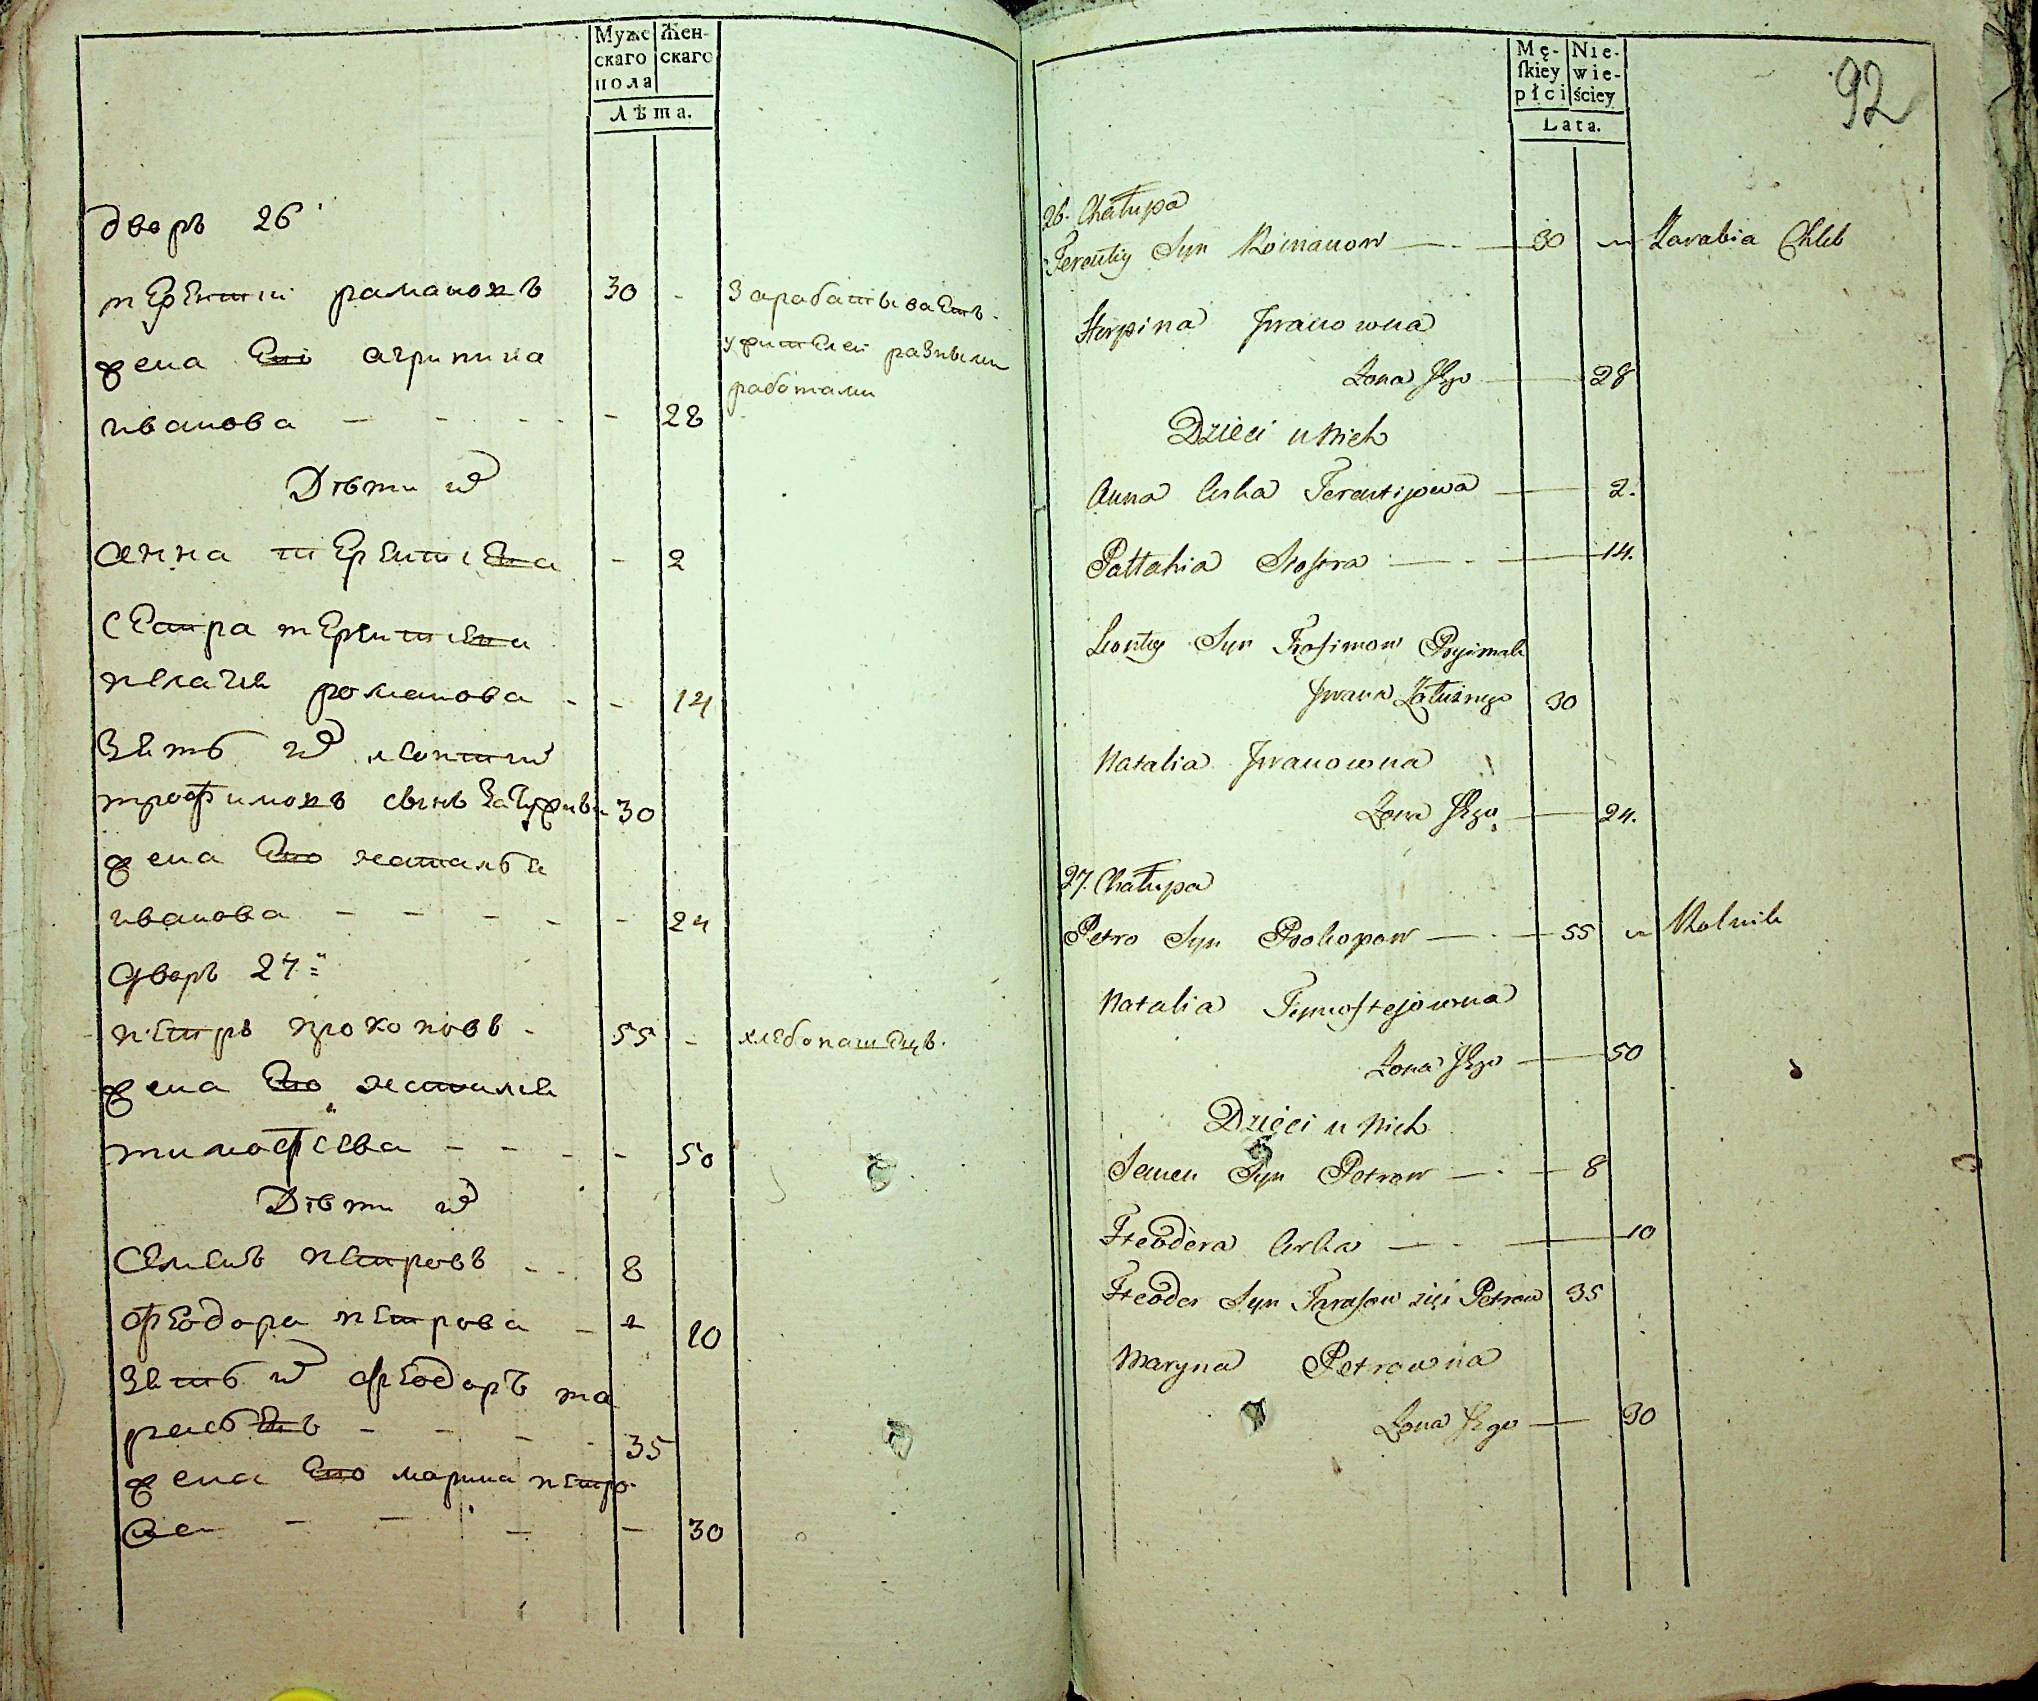 Муже
скаго
пола
Жен-
скаго
Лѣта.
дворъ 26
терентий романовъ 30 -
зарабатываетъ
разными
работами
жена его агрипина
иванова - - - - - 28
Дѣти их
анна терентиева - 2
сестра терентиева
пелагия романова - - 14
зять их леонтий
трофимовъ сынъ 30
жена его наталья
иванова - - - - - 24
дворъ 27
петръ прокоповъ - 55 - хлебопашецъ.
жена его наталья
тимофеева - - - - 50
Дѣти их
семенъ петровъ - - 8
феодора петрова - - 10
зять их феодоръ та
расовъ - - - - 35
жена его марина петро
ва - - - - - 30
92
Mę-
ſkiey
płci
Nie-
wie-
ściey
Lata.
26. Chałupa
Terentiy Syn Romanow 30 Zarabia Chleb
Horpina Jwanowna
Zona Jego 28
Dzieci u Nich
Anna Curka Terentijowa 2.
Pałłahia Siostra 14.
Leontiy Syn Trofimow Pryimak
Jwana 30
Natalia Jwanowna
Zona Jego 24.
27. Chałupa
Petro Syn Prokopow 55 Rolnik
Natalia Tymoftejowna
Zona Jego 50
Dzieci u Nich
Semen Syn Petrow 8
Fteodora Curka 10
Fteodor Syn Tarasow zięć Petrow 35
Maryna Petrowna
Zona Jego 30